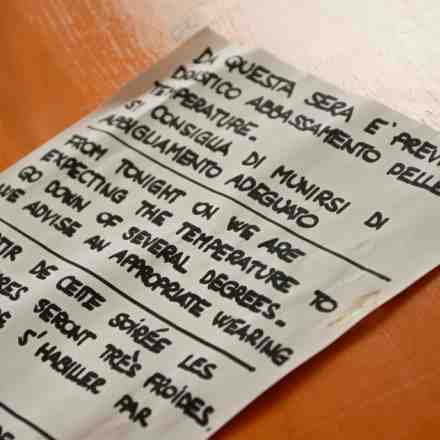 DA QUESTA SERA E' PREV
DRASTICO ABBASSAMENTO DELLE
TEMPERATURE.
SI CONSIGLIA DI MUNIRSI DI
ABBIGLIAMENTO ADEGUATO
FROM TONIGHT ON WE ARE
EXPECTING THE TEMPERATURE TO
GO DOWN OF SEVERAL DEGREES.
WE ADVISE AN APPROPRIATE WEARING
TIR DE CETTE SOIRÉE LES
RES SERONT TRÈS FROIDES.
S'HABILLER PAR